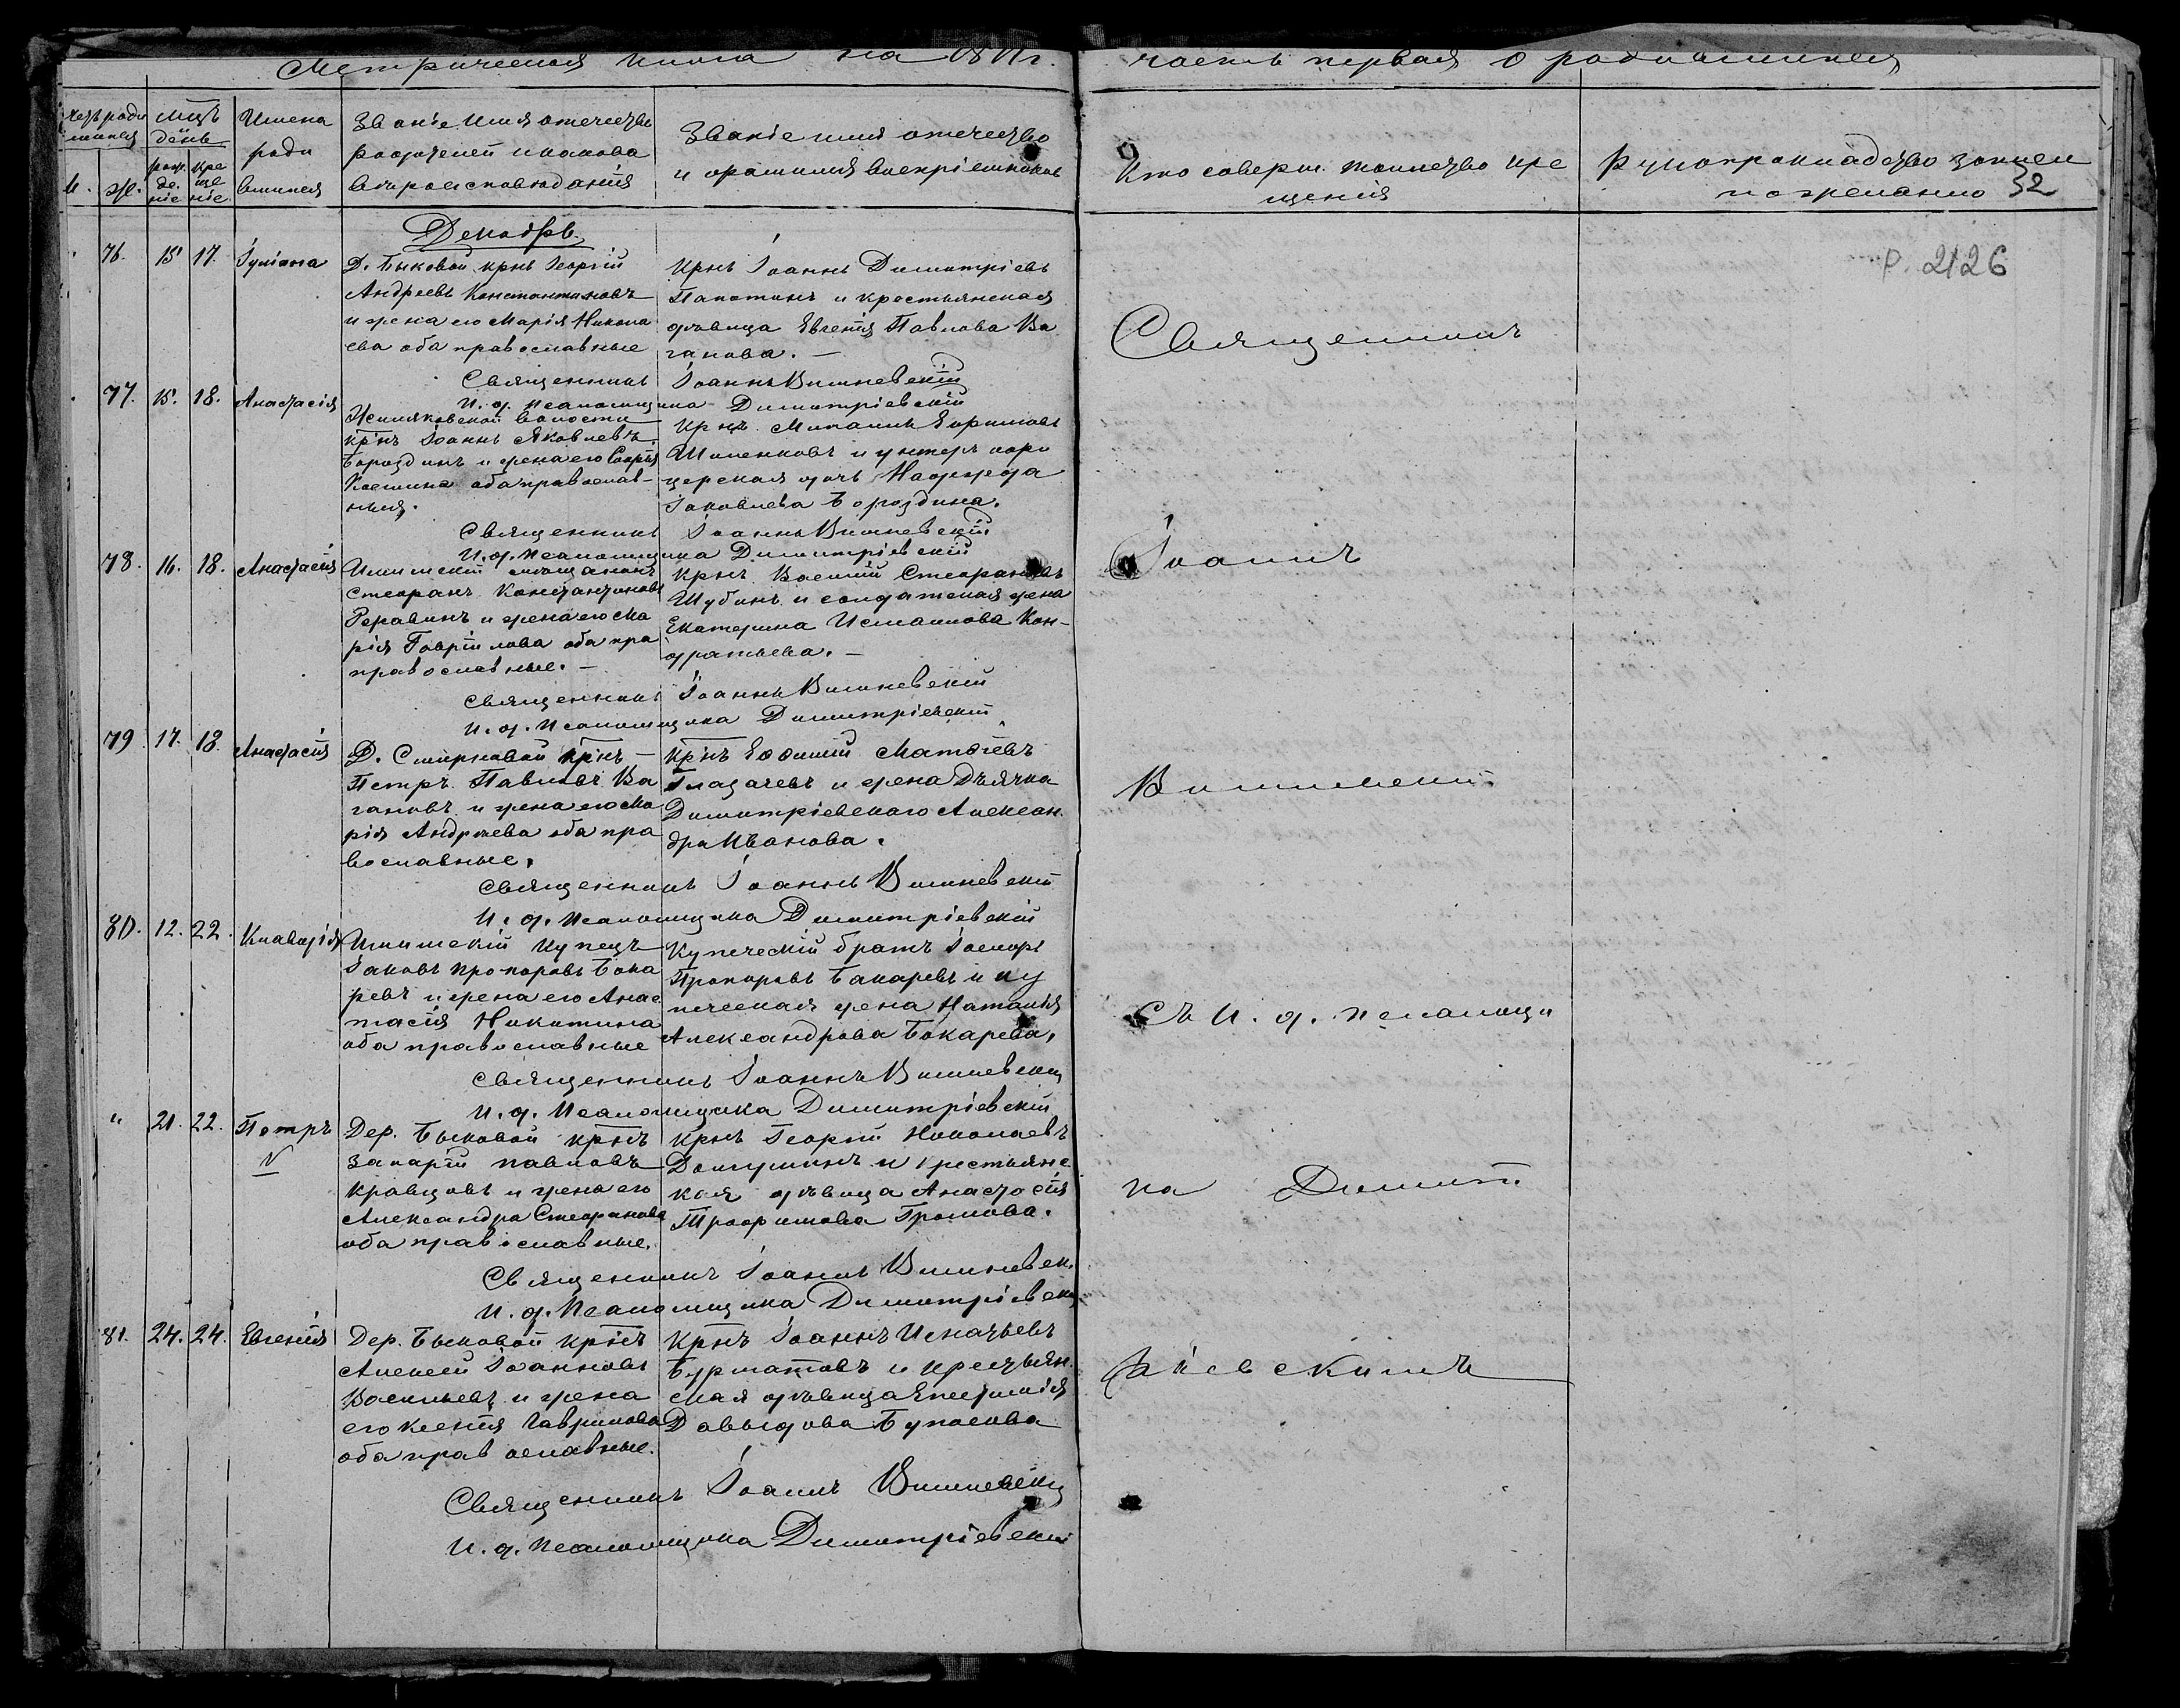 Метрическая книга на 1871 г. часть первая о родившихся
Счетъ родившихся
М. Ж.
Мѣсяцъ день
рожденіе крещеніе
Имена родившихся
Званіе имя отечество
родителей и какова
вѣроисповѣданія
Званіе имя отечество
и фамилия воспріемниковъ
Кто соверш. таинство кре
щенія
Рукоприкладство записи
по желанію 32
Р. 2126
Декабрь
76. 15 17. Іуліана
Д. Быковой крнъ Георгій
Андреевъ Константиновъ
и жена его Марія Никола
ева оба православные
Крнъ Іоаннъ Димитріевъ
Папотинъ и крестьянская
дѣвица Евгенія Павлова Ва
ганова. —
Священникъ Іоаннъ Вишневскій
И. д. псаломщика Димитріевскій
77. 15. 18. Анастасія
волости
крнъ Іоаннъ Яковлевъ
Бороздинъ и жена его Софья
Косшина оба православ-
ныя.
Крнъ Михаилъ Ефимовъ
Шиленковъ и унтеръ офи
церская дочь Надежда
Іаковлева Бороздина.
Священникъ Іоаннъ Вишневскій
И. д. псаломщика Димитріевскій
78. 16. 18. Анастасія
Ишимскій мѣщанинъ
Стефанъ Константиновъ
и жена его Ма
рія Гавріилова оба пра
православные. —
Крнъ Василій Стефановъ
Шубинъ и солдатская жена
Екатерина Исмаилова Кон-
дратьева. —
Священникъ Іоаннъ Вишневскій
И. д. псаломщика Димитріевскій
79. 17. 18. Анастасія
Д. Смирновой крнъ —
Петръ Павловъ Ва
гановъ и жена его Ма
рія Андреева оба пра
вославные.
Крнъ Евѳимій Матѳіевъ
Глазачевъ и жена Дьячка
Димитріевскаго Алексан
дра Иванова.
Священникъ Іоаннъ Вишневскій
И. д. псаломщика Димитріевскій
80. 12. 22. Клавдія
Ишимскій купецъ
Іаковъ Прокоровъ Бока
ревъ и жена его Анас
тасія Никитина
оба православные
Купеческій братъ
Прокоровъ Бакаревъ и ку
печеская жена Наталія
Александрова Бокарева.
Священникъ Іоаннъ Вишневскій
И. д. псаломщика Димитріевскій
" 21. 22. Петръ
Дер. Быковой крнъ
Захарій Павловъ
Кравцовъ и жена его
Александра Стефанова
оба православные.
Крнъ Георгій Николаевъ
Долгушинъ и крестьянс
кая дѣвица Анастасія
Трофимова Громова.
Священникъ Іоаннъ Вишневск.
И. д. псаломщика Димитріевскій
81. 24. 24. Евгенія
Дер. Быковой крнъ
Алексей Іоанновъ
Васильевъ и жена
его Ксенія Гаврилова
оба православные.
Крнъ Іоаннъ Игнатьевъ
Бурматовъ и крестьян
ская дѣвица
Давыдова
Священникъ Іоаннъ Вишневскій
И. д. псаломщика Димитріевскій
Священникъ
Іоаннъ
Вишневскій
съ и. д. псаломщи
ка Димит
ріевскимъ